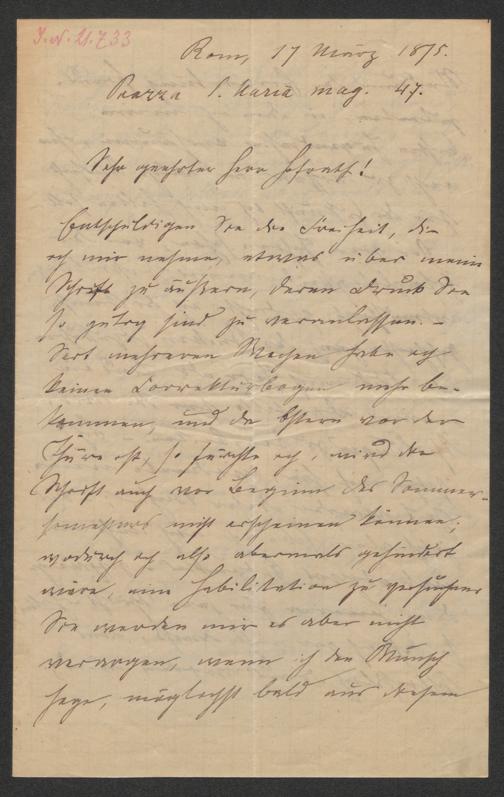 I. N. 21.733
Rom, 17 März 1875.
Piazza S. Maria mag. 47.
Sehr geehrter Herr Hofrath!
Entschuldigen Sie die Freiheit, die
ich mir nehme, etwas über meine
Schrift zu äußern, deren Druck Sie
so gütig sind zu veranlassen. –
Seit mehreren Wochen habe ich
keinen Correkturbogen mehr be-
kommen, und da Ostern vor der
Thüre ist, so fürchte ich, wird die
Schrift auch vor Beginn des Sommer-
semesters nicht erscheinen können;
wodurch ich also abermals gehindert
wäre, eine Habilitation zu versuchen.
Sie werden mir es aber nicht
verargen, wenn ich den Wunsch
hege, möglichst bald aus diesem